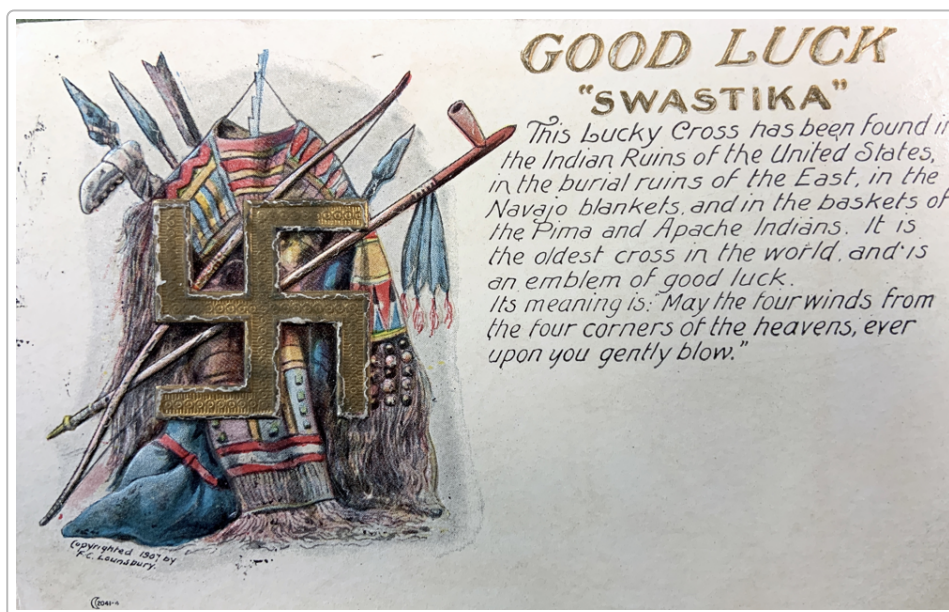 GOOD LUCK
"SWASTIKA"
This Lucky Cross has been found in
the Indian Ruins of the United States,
in the burial ruins of the East, in the
Navajo blankets, and in the baskets of
the Pima and Apache Indians. It is
the oldest cross in the world, and is
an emblem of good luck.
Its meaning is: "May the four winds from
the four corners of the heavens, ever
upon you gently blow."
Copyrighted 1907 by
F.C. Lounsbury.